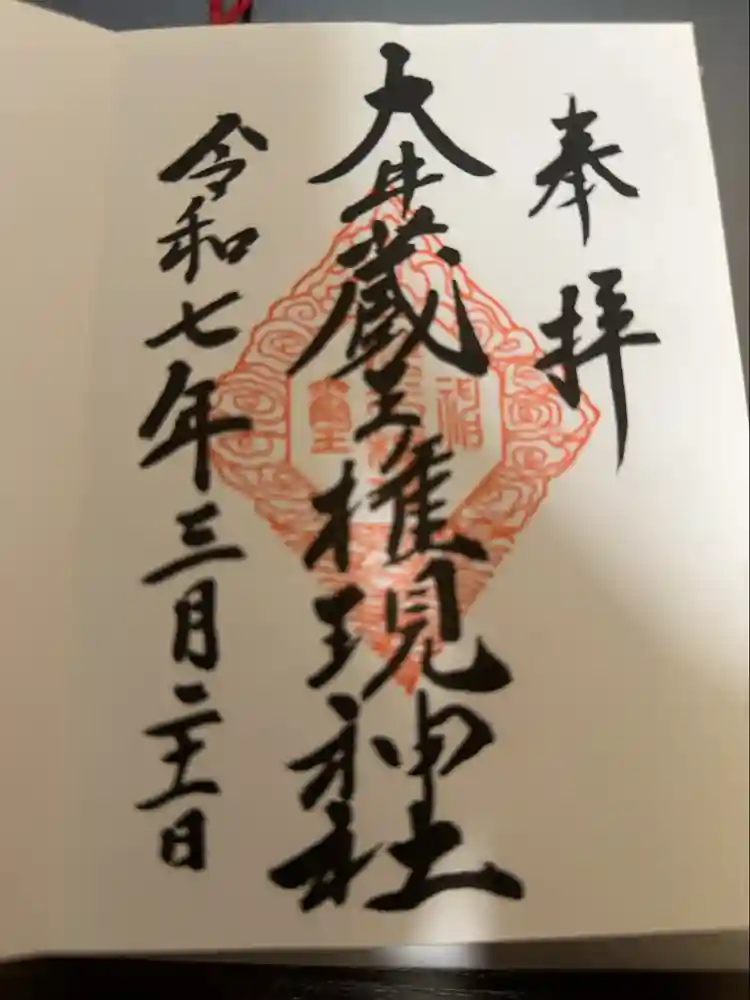 奉拝
大井蔵王権現神社
令和七年三月二十日